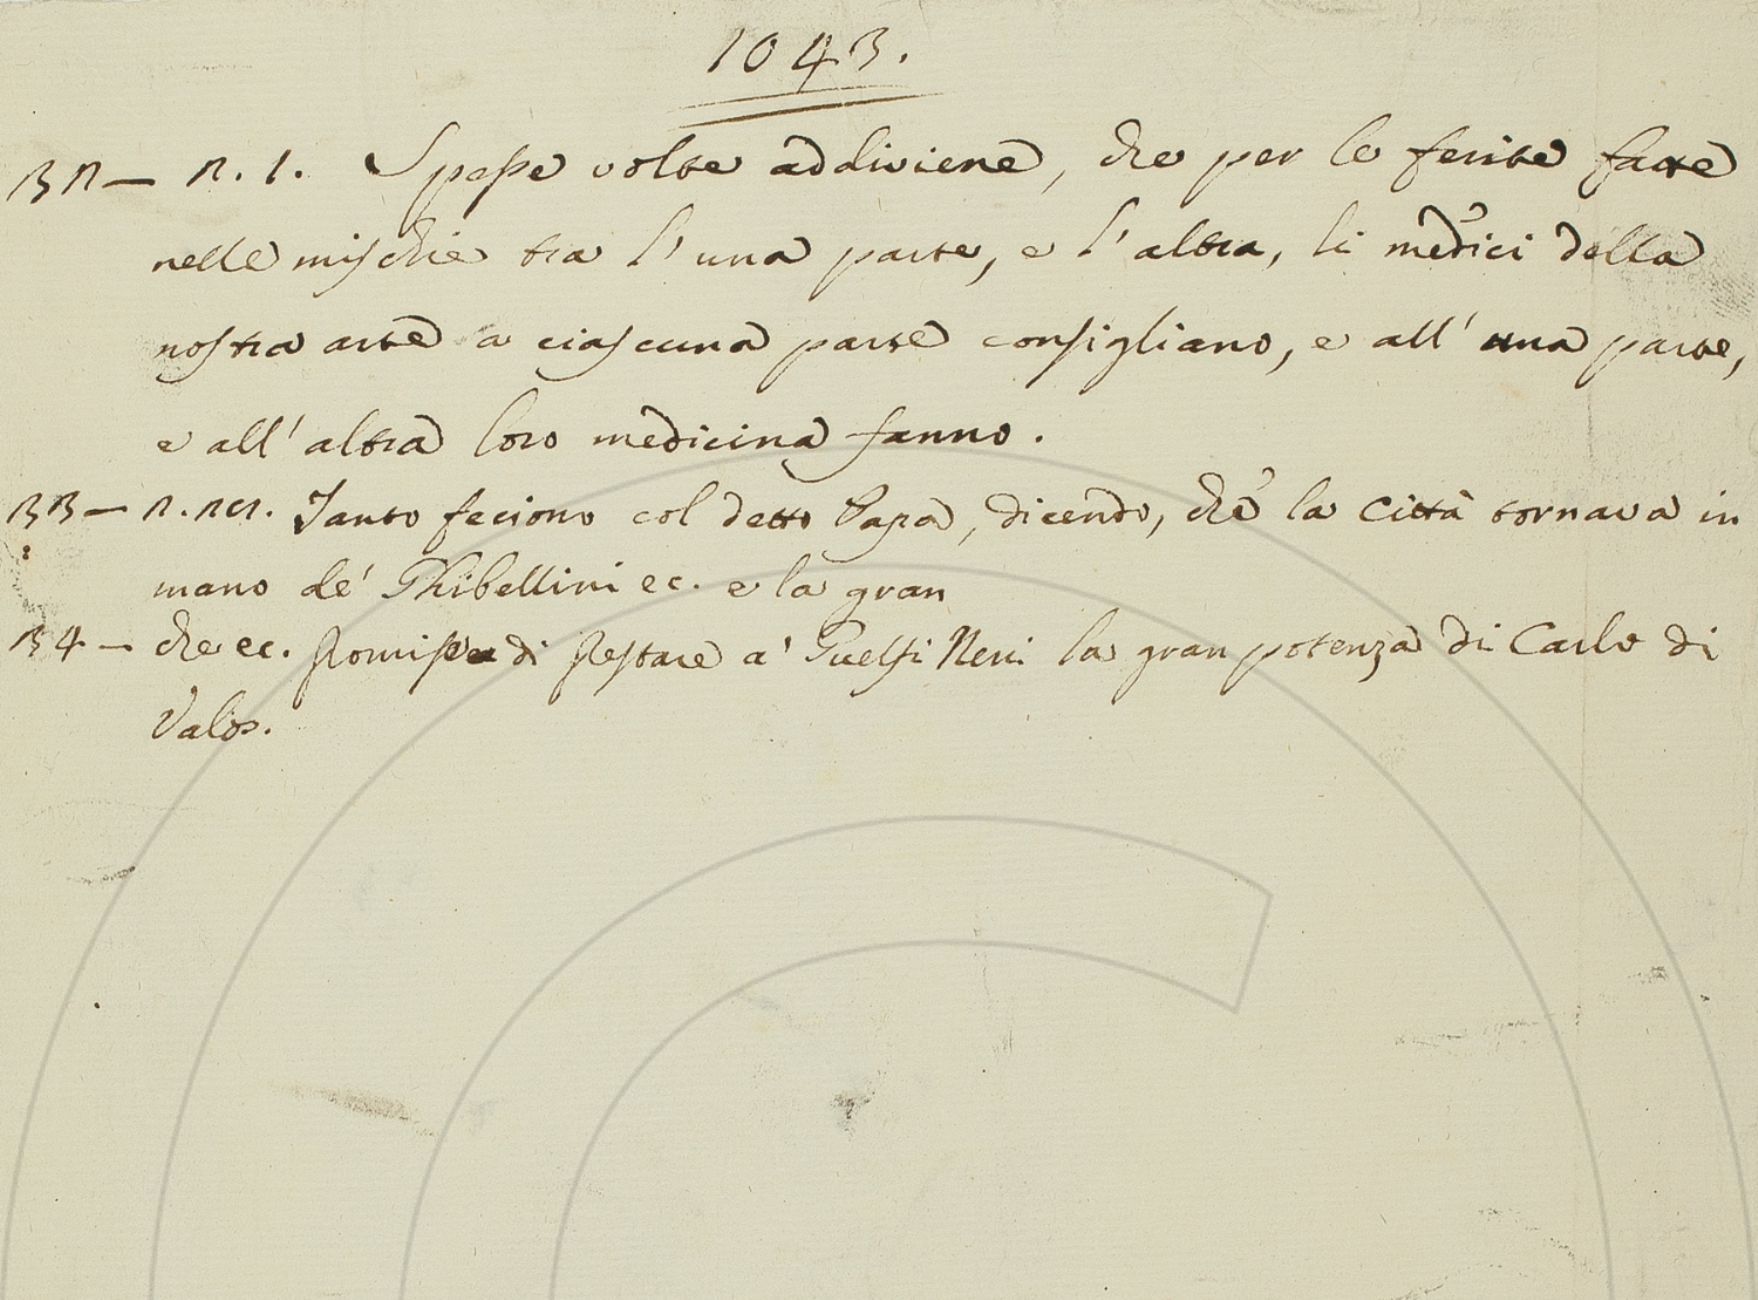 1043.
32 — 2. 1. Spesse volte addiviene, che per le ferite fatte
nelle mischie tra l'una parte, e l'altra, li medici della
nostra arte a ciascuna parte consigliano, e all'una parte,
e all'altra loro medicina fanno.
33 — 2. 29. Tanto feciono col detto Papa, dicendo, che la Città tornava in
mano de' Ghibellini ec. e la gran
34 — che ec. Promise di Prestare a' Guelfi Neri la gran potenza di Carlo di
Valos.